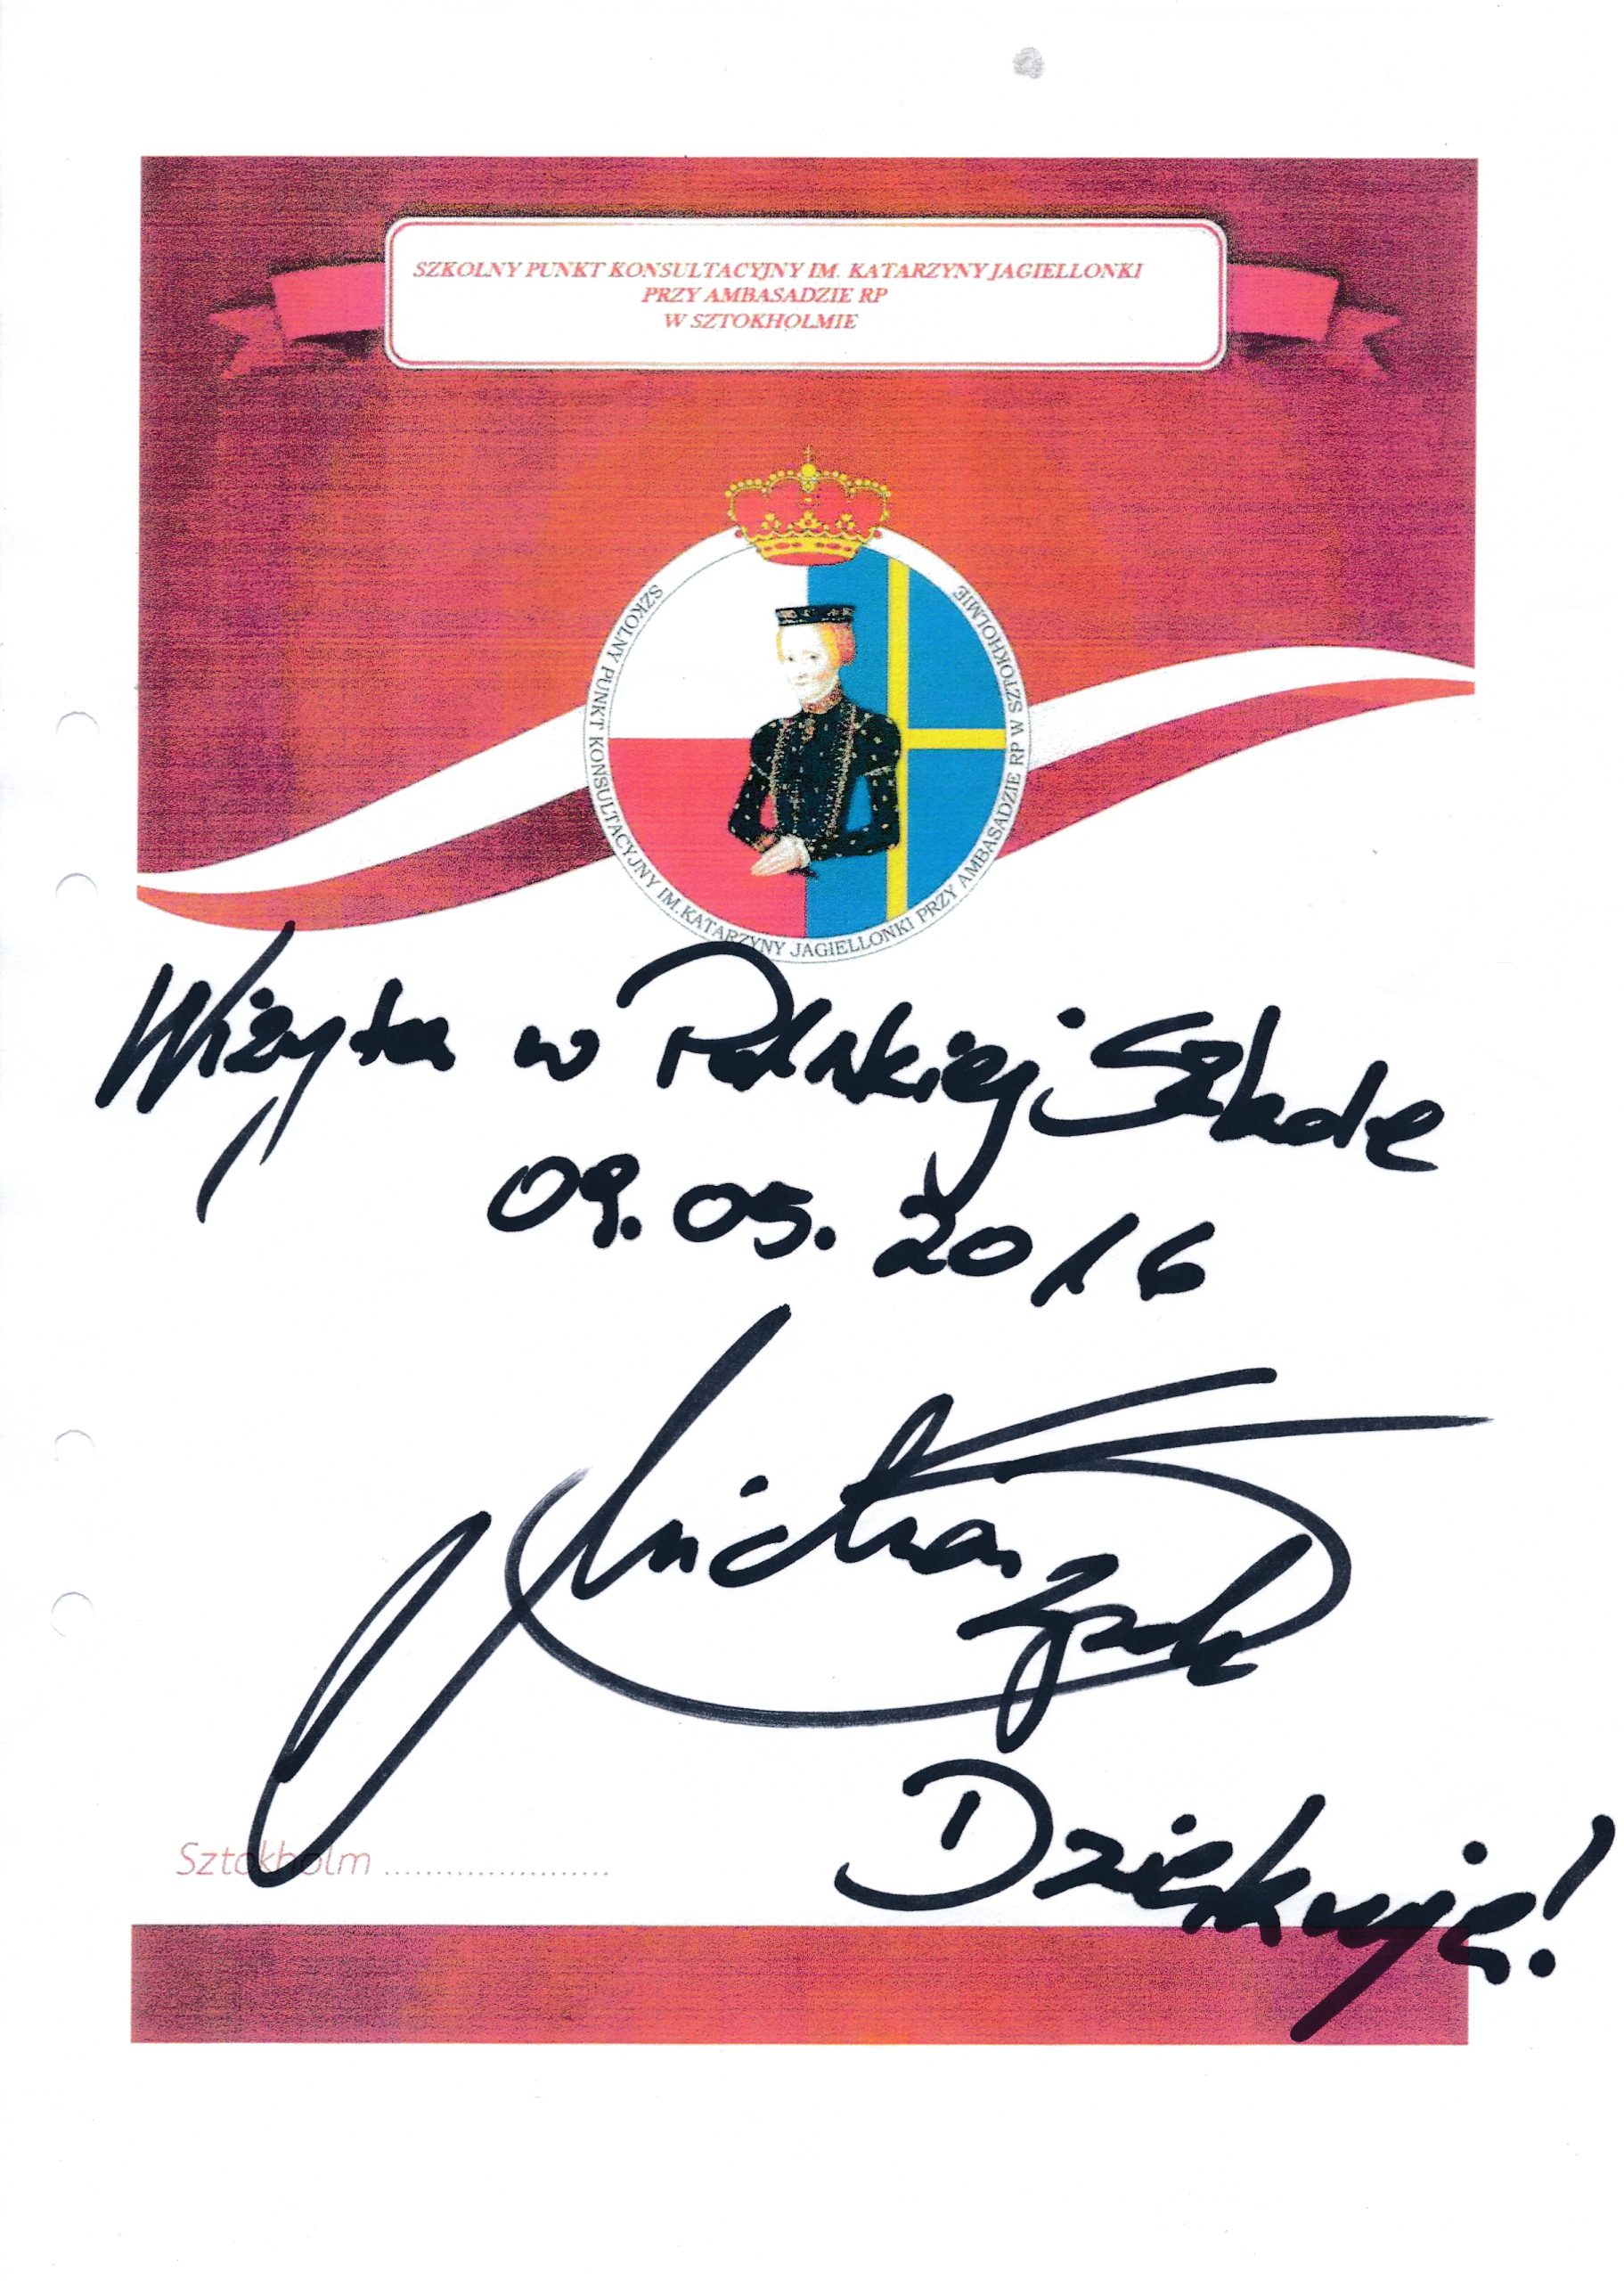 SZKOLNY PUNKT KONSULTACYJNY IM. KATARZYNY JAGIELLONKI
PRZY AMBASADZIE RP
W SZTOKHOLMIE
SZKOLNY PUNKT KONSULTACYJNY IM. KATARZYNY JAGIELLONKI PRZY AMBASADZIE RP W SZTOKHOLMIE
Wizyta w Polskiej Szkole
09.05.2016
Sztokholm ......................
Dziękuję!